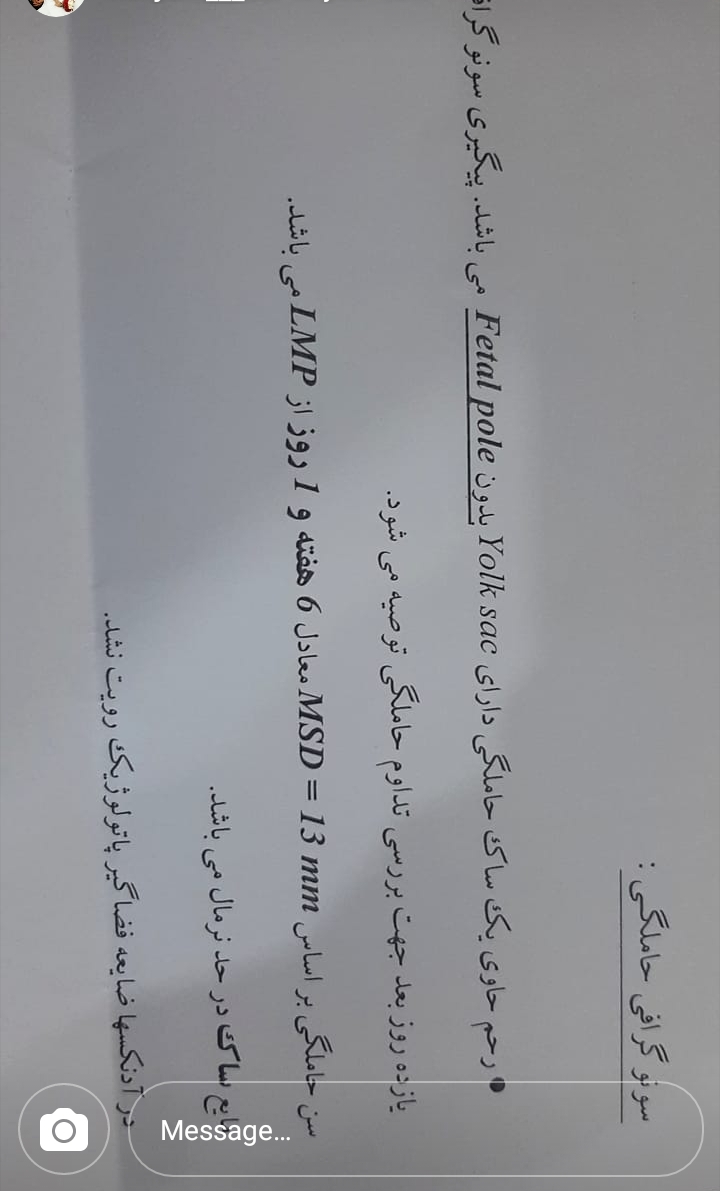 سونوگرافی حاملگی :
● رحم حاوی یک ساک حاملگی دارای Yolk sac بدون Fetal pole می باشد. پیگیری
یازده روز بعد جهت بررسی تداوم حاملگی توصیه می شود.
سن حاملگی بر اساس MSD = 13 mm معادل 6 هفته و 1 روز از LMP می باشد.
مایع ساک در حد نرمال می باشد.
در آدنکسها ضایعه فضاگیر پاتولوژیک رویت نشد.
Message...